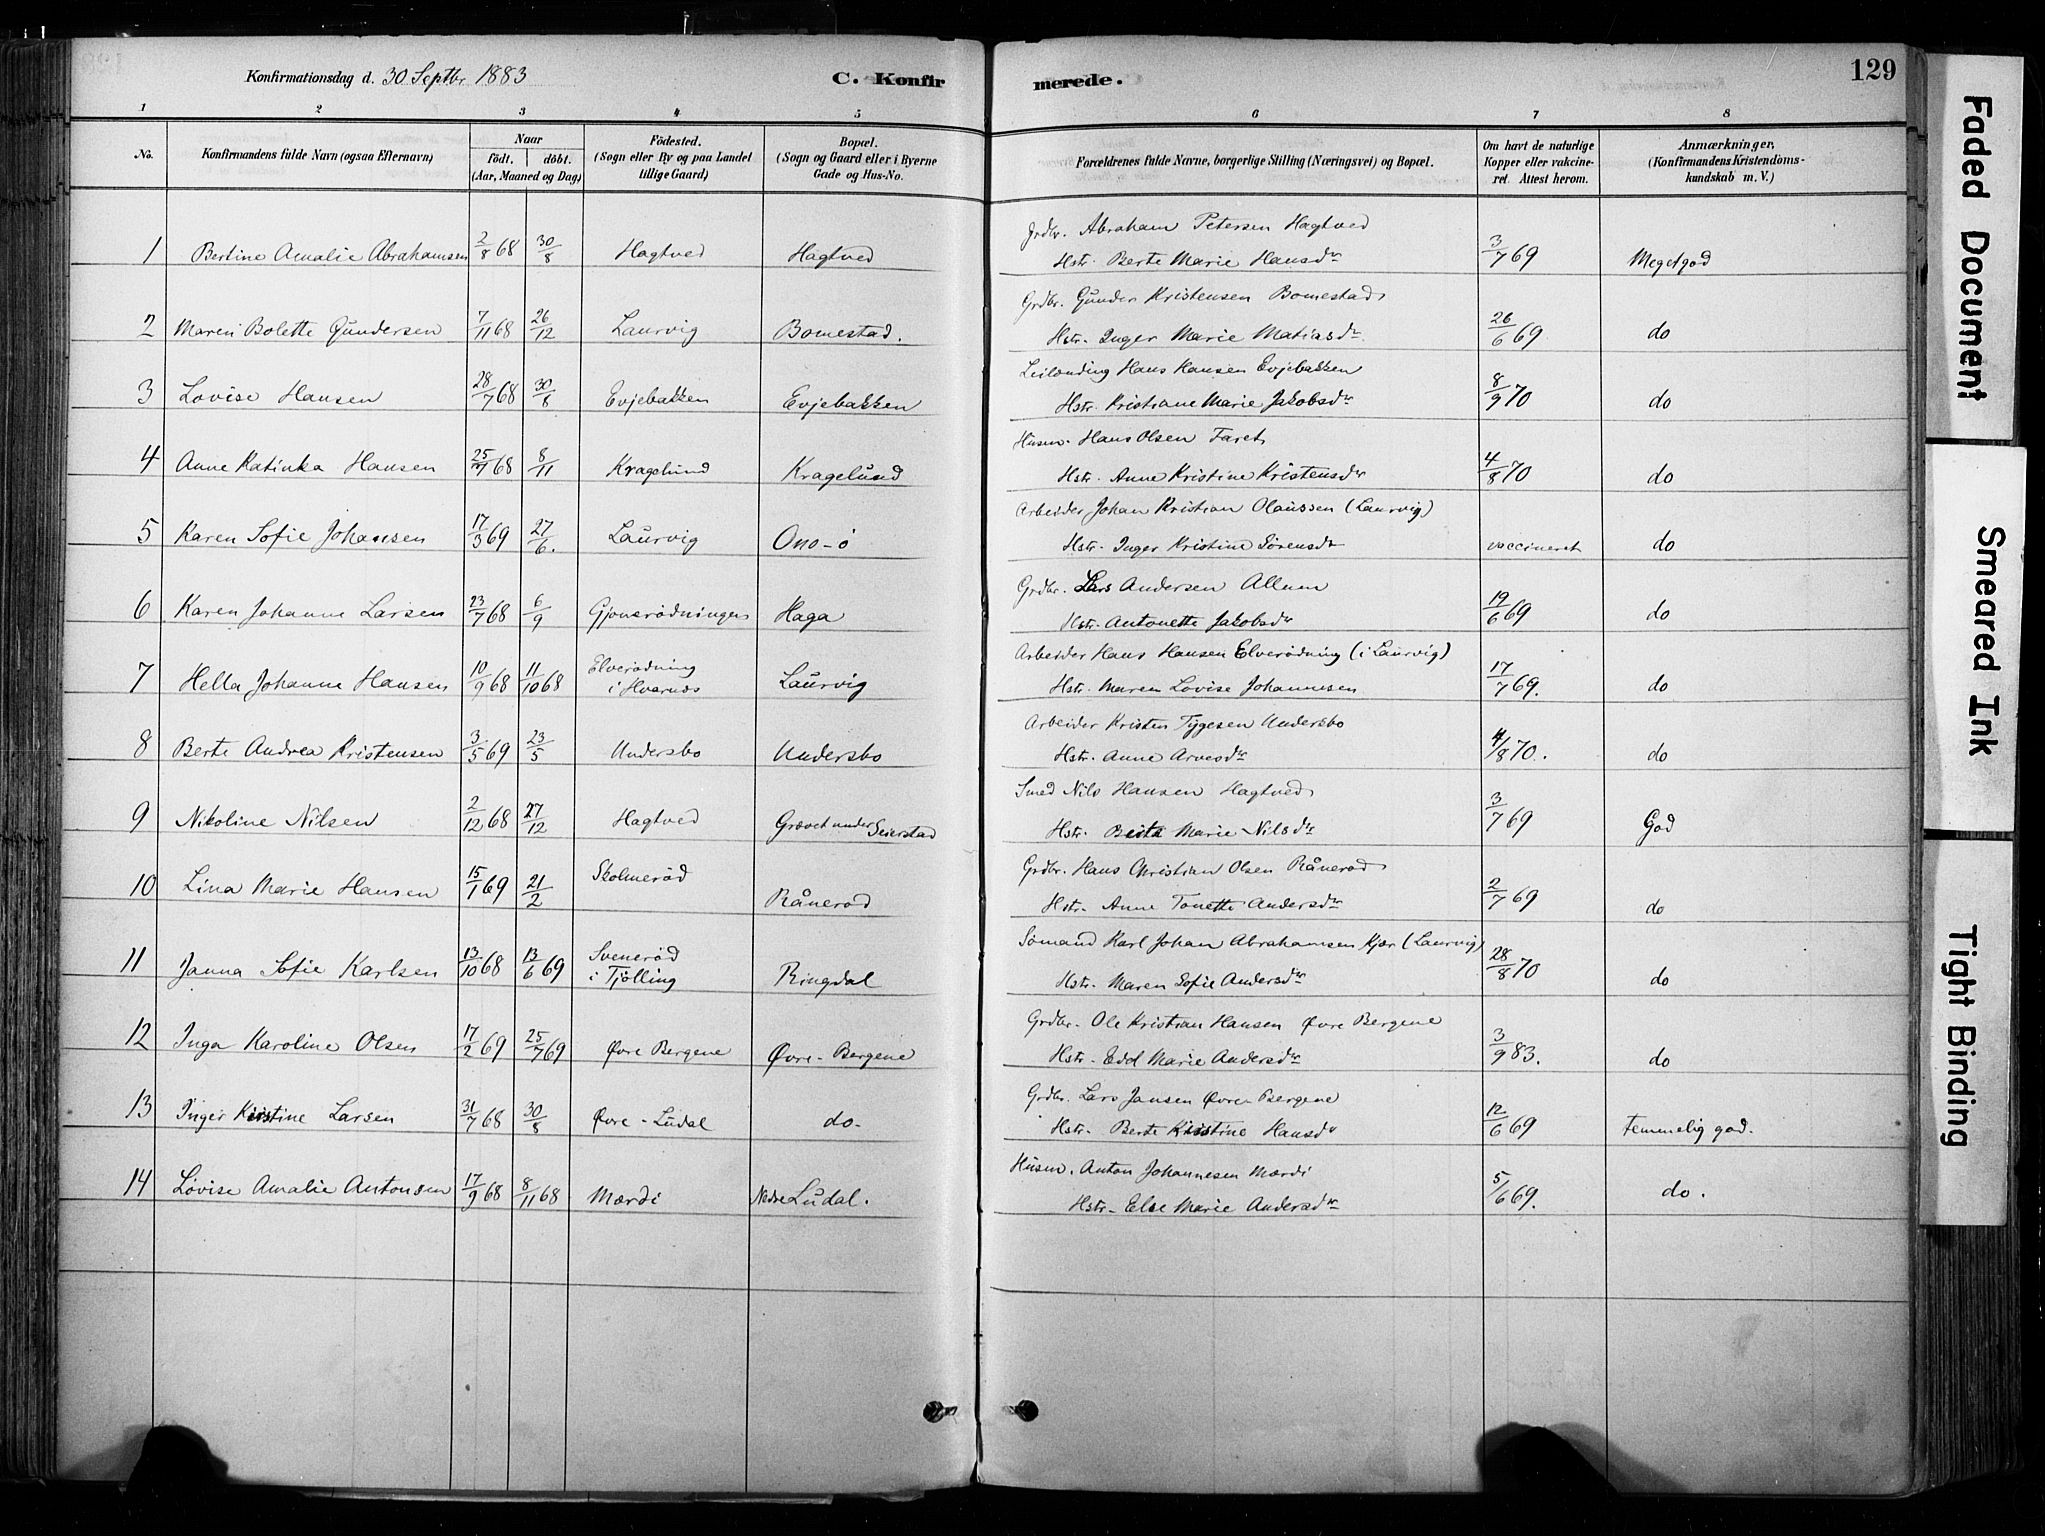 Konfirmationsdag d. 30 Septbr 1883
C. Konfirmerede.
129
1 2 3 4 5 6 7 8
No.
Konfirmandens fulde Navn (ogsaa Efternavn)
Naar
födt. döbt.
(Aar, Maaned og Dag)
Födested.
(Sogn eller By og paa Landet
tillige Gaard)
Bopæl.
(Sogn og Gaard eller i Byerne
Gade og Hus-No.
Forældrenes fulde Navne, borgerlige Stilling (Næringsvei) og Bopæl.
Om havt de naturlige
Kopper eller vakcine-
ret. Attest herom.
Anmærkninger,
(Konfirmandens Kristendoms-
kundskab m. V.)
Grdbr. Abraham Petersen Hagtved
1 Bertine Amalie Abrahamsen 2/8 68 30/8 Hagtved Hagtved Hstr. Berte Marie Hansdr 3/7 69 Megetgod
Grdbr. Gunder Kristensen Bomestad
2 Maren Bolette Gundersen 7/11 68 26/12 Laurvig Bomestad. Hstr. Inger Marie Matiasdr 26/6 69 do
Leilænding Hans Hansen Evjebakken
3 Lovise Hansen 28/7 68 30/8 Evjebakken Evjebakken Hstr. Kristiane Marie Jakobsdr 8/9 70 do
Husm. Hans Olsen Faret
4 Anne Katinka Hansen 25/7 68 8/11 Kragelund Kragelund Hstr. Anne Kristine Kristensdr 4/8 70 do
Arbeider Johan Kristian Olaussen (Laurvig)
5 Karen Sofie Johansen 17/3 69 27/6. Laurvig Ono-ö Hstr. Inger Kristine Sörensdr vaccineret do
Grdbr. Lars Andersen Allum
6 Karen Johanne Larsen 23/7 68 6/9 Gjonsrödningen Haga Hstr. Antonette Jakobsdr 19/6 69 do
Arbeider Hans Hansen Elverödning (i Laurvig)
7 Hella Johanne Hansen 10/9 68 11/10 68 Elverödning
i Hvarnes Laurvig Hstr. Maren Lovise Johannesen 17/7 69. do
Arbeider Kristen Tygesen Undersbo
8 Berte Andrea Kristensen 3/5 69 23/5 Undersbo Undersbo Hstr. Anne Arvesdr 4/8 70. do
Smed Nils Hansen Hagtved
9 Nikoline Nilsen 2/12 68 27/12 Hagtved Grövet under Seierstad Hstr. Berte Marie Nilsdr 3/7 69 God
Grdbr. Hans Christian Olsen Rånerød
10 Lina Marie Hansen 15/1 69 21/2 Skolmerød Rånerød Hstr. Anne Tonette Andersdr 2/7 69 do
Sömand Karl Johan Abrahamsen Kjær (Laurvig)
11 Janna Sofie Karlsen 13/10 68 13/6 69 Svenerød
i Tjölling Ringdal Hstr. Maren Sofie Andersdr 28/8 70 do
Grdbr. Ole Kristian Hansen Øvre Bergene
12 Inga Karoline Olsen 17/2 69 25/7 69 Øvre Bergene Øvre-Bergene Hstr. Edel Marie Andersdr 3/9 83. do
Grdbr. Lars Jansen Øvre Bergene
13 Inger Kristine Larsen 31/7 68 30/8 Øvre-Ludal do. Hstr. Berte Kristine Hansdr 12/6 69 temmelig god.
Husm. Anton Johannesen Mærdi
14 Lovise Amalie Antonsen 17/9 68 8/11 68 Mærdi Nedre Ludal. Hstr. Else Marie Andersdr 5/6 69. do.
Faded Document
Smeared Ink
Tight Binding